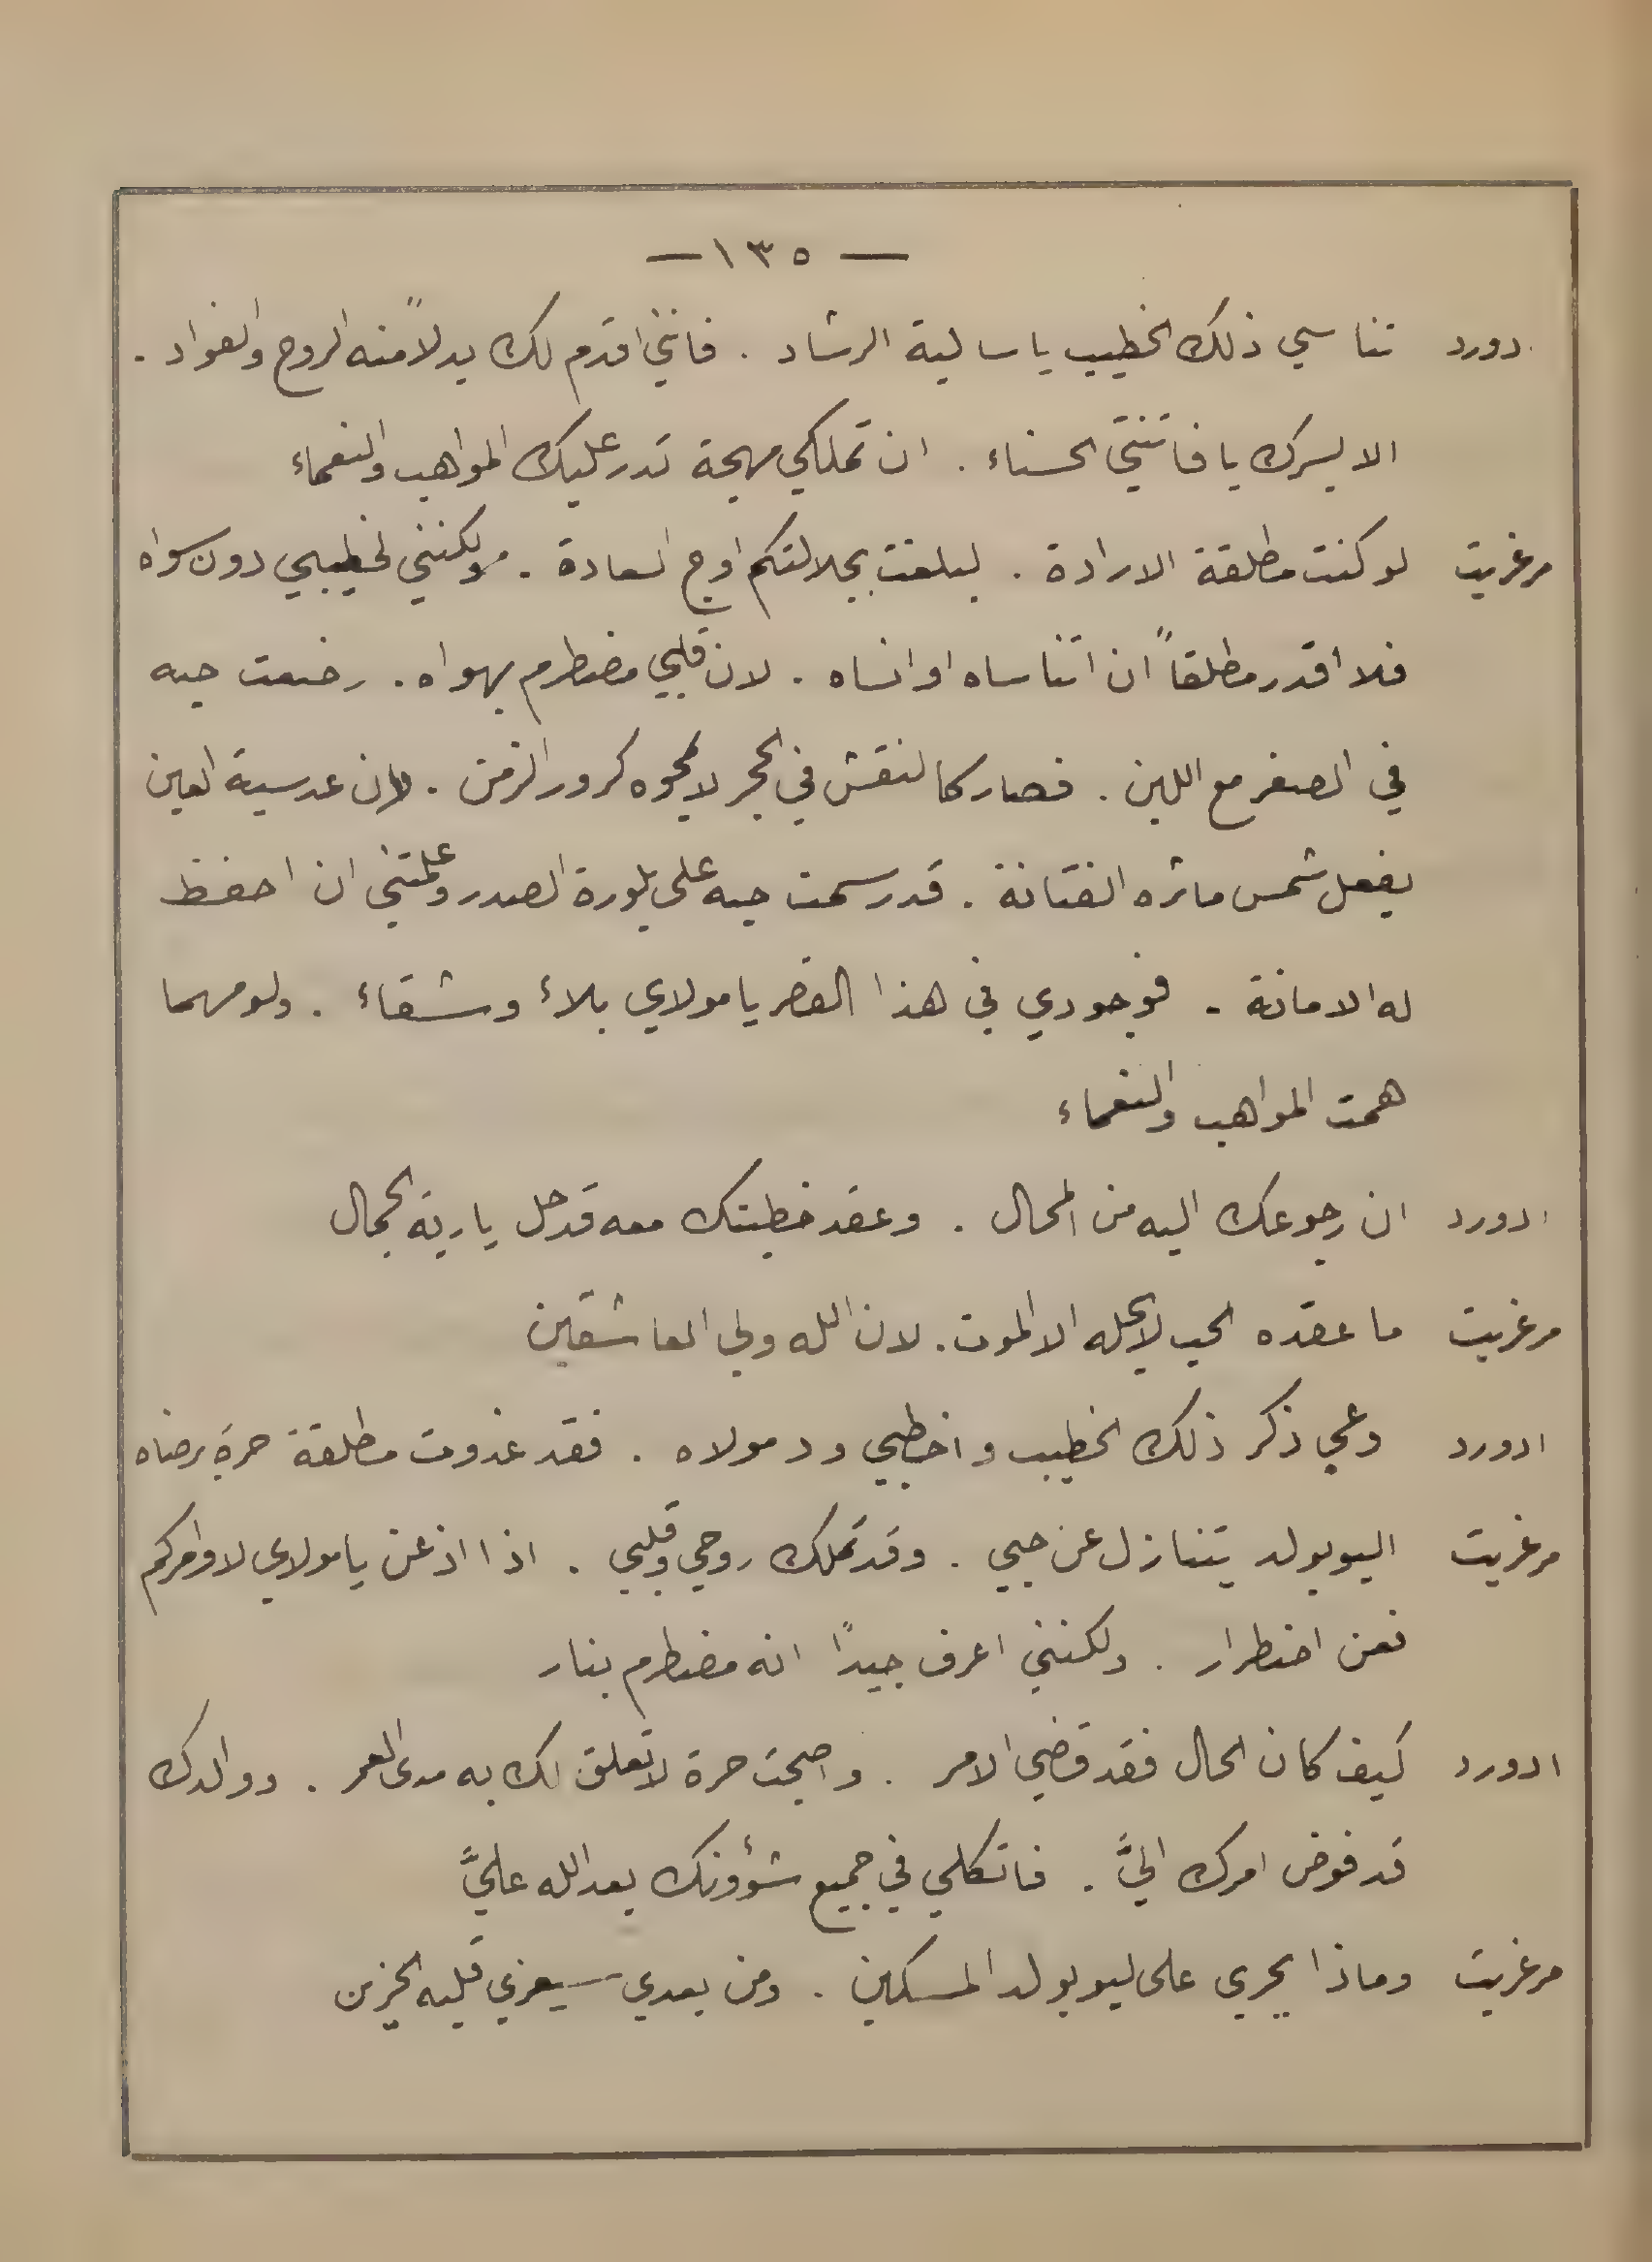 — ١٣٥ —
دورد تناسي ذلك الخطيب يا سالبة الرشاد . فانني اقدم لك بدلاً منه الروح والفواد .
الا يسرك يا فاتنتي الحسناء . ان تملكي مهجة تدر عليك المواهب والنعماء
مرغريت لو كنت مطلقة الارادة . لبلغت بجلالتكم اوج السعادة . ولكنني لخطيبي دون سواه
فلا اقدر مطلقاً ان اتناساه او انساه . لان قلبي مضطرم بهواه . رضعت حبه
في الصغر مع اللبن . فصار كالنقش في الحجر لا يمحوه كرور الزمن . لان عدسية العين
بفعل شمس ماثره الفتانة . قد رسمت حبه على بلورة الصدر وعلمتني ان احفظ
له الامانة . فوجودي في هذا القصر يا مولاي بلاء وشقاء . ولو مهما
همت المواهب والنعماء
ادورد ان رجوعك اليه من المحال . وعقد خطبتك معه قد حل يا ربة الجمال
مرغريت ما عقده الحب لا يحله الا الموت . لان الله ولي العاشقين
ادورد دعي ذكر ذلك الخطيب واخطبي ود مولاه . فقد غدوت مطلقة حرة برضاه
مرغريت اليوبولد يتنازل عن حبي . وقد تملك روحي وقلبي . اذا اذعن يا مولاي لاوامركم
فعن اضطرار . ولكنني اعرف جيداً انه مضطرم بنار
ادورد كيف كان الحال فقد قضي الامر . واصبحت حرة لا تعلق لك به مدى العمر . ووالدك
قد فوض امرك اليَّ . فاتكلي في جميع شؤونك بعد الله عليَّ
مرغريت وماذا يجري على ليوبولد المسكين . ومن بعدي سيعزي قلبه الحزين